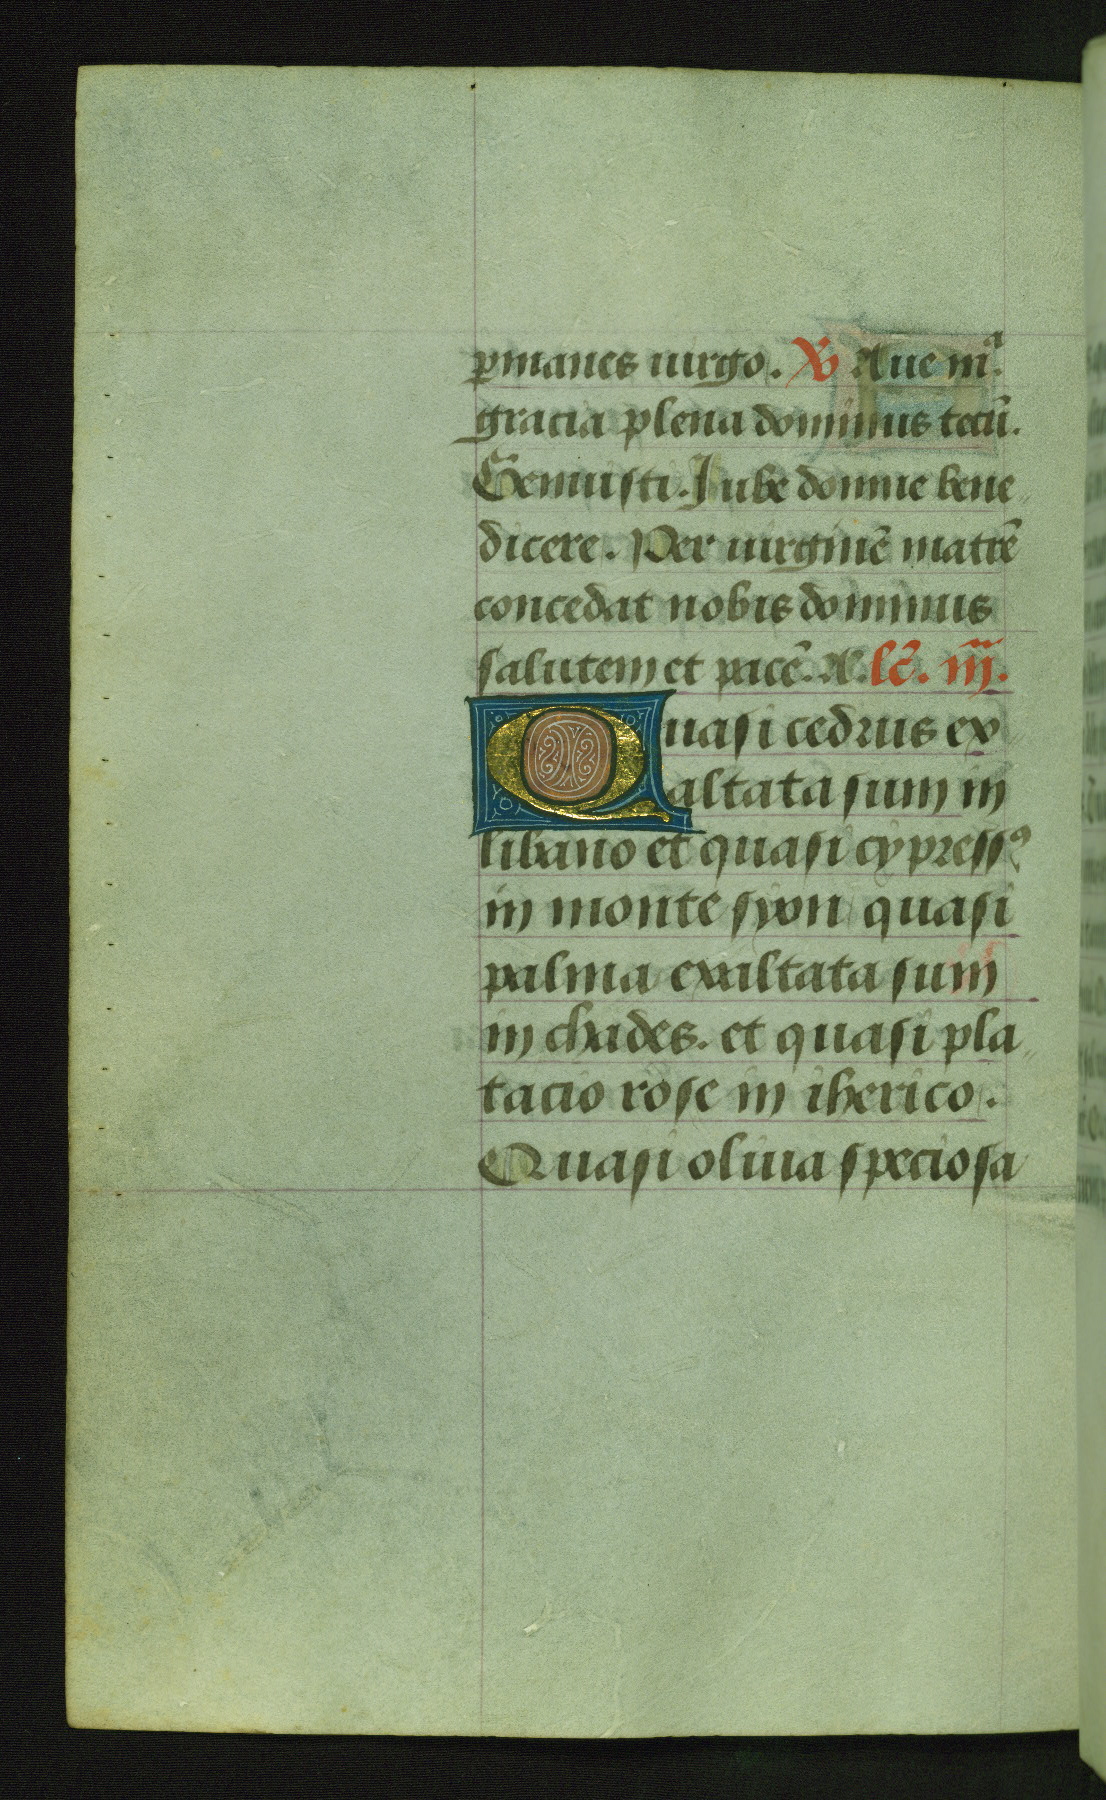 p̲manes uirgo. ℣ Aue mᵃ.
gracia plena dominus tecū.
Genuisti. Iube domne bene
dicere. Per uirginē matrē
concedat nobis dominus
salutem et pacē. A. lc̄. iij.
Quasi cedrus ex
altata sum in
libano et quasi cypressꝰ
in monte syon quasi
palma exaltata sum
in chades. et quasi pla
tacio rose in iherico.
Quasi oliua speciosa